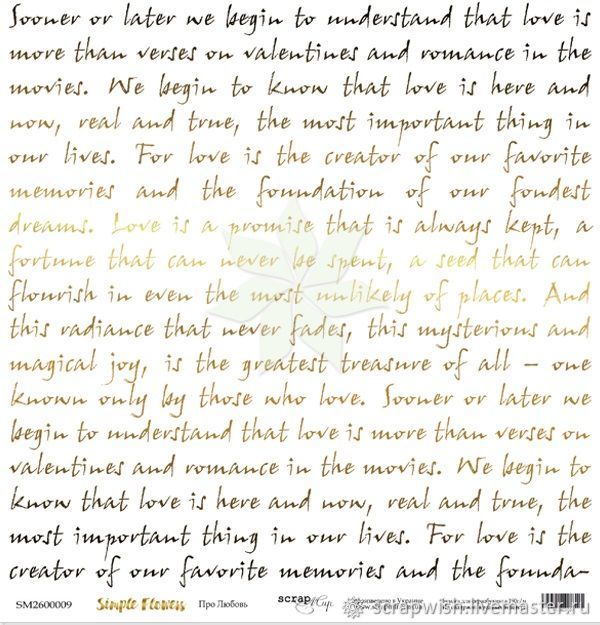 Sooner or later we begin to understand that love is
more than verses on valentines and romance in the
movies. We begin to know that love is here and
now, real and true, the most important thing in
our lives. For love is the creator of our favorite
memories and the foundation of our fondest
dreams. Love is a promise that is always kept, a
fortune that can never be spent, a seed that can
flourish in even the most unlikely of places. And
this radiance that never fades, this mysterious and
magical joy, is the greatest treasure of all – one
known only by those who love. Sooner or later we
begin to understand that love is more than verses on
valentines and romance in the movies. We begin to
know that love is here and now, real and true, the
most important thing in our lives. For love is the
creator of our favorite memories and the founda-
SM2600009 Simple Flowers Про Любовь scrapmir
scrapwish.livemaster.ru